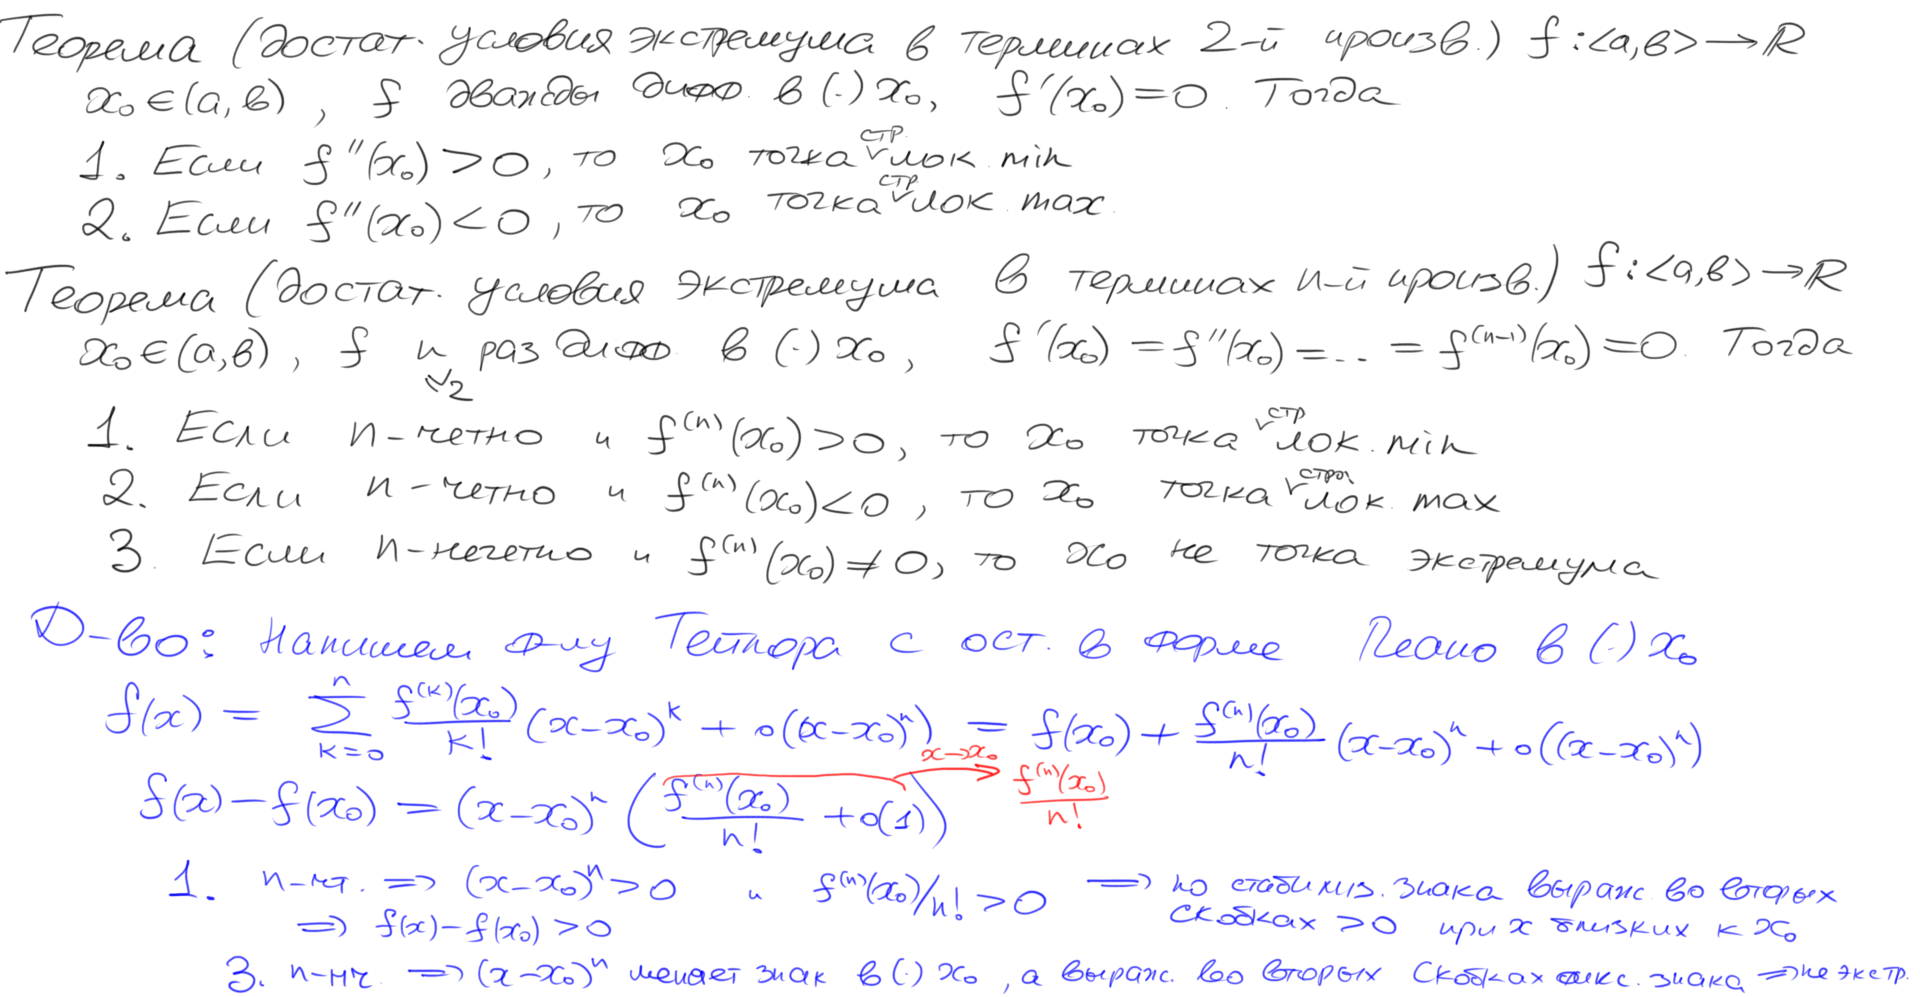 Теорема (достат. условия экстремума в терминах 2-й произв.) f:<a,b>→ℝ
x₀∈(a,b), f дважды дифф. в (·) x₀, f'(x₀)=0. Тогда
1. Если f''(x₀)>0, то x₀ точка стр. лок. min
2. Если f''(x₀)<0, то x₀ точка стр. лок. max.
Теорема (достат. условия экстремума в терминах n-й произв.) f:<a,b>→ℝ
x₀∈(a,b), f n раз дифф. в (·) x₀, f'(x₀)=f''(x₀)=...=f⁽ⁿ⁻¹⁾(x₀)=0. Тогда
∨ 2
1. Если n-четно и f⁽ⁿ⁾(x₀)>0, то x₀ точка стр лок. min
2. Если n-четно и f⁽ⁿ⁾(x₀)<0, то x₀ точка строг лок. max
3. Если n-нечетно и f⁽ⁿ⁾(x₀)≠0, то x₀ не точка экстремума
Д-во: Напишем ф-лу Тейлора с ост. в форме Пеано в (·) x₀
f(x) = ∑_{k=0}^{n} f⁽ᵏ⁾(x₀)/k! (x-x₀)ᵏ + o((x-x₀)ⁿ) = f(x₀) + f⁽ⁿ⁾(x₀)/n! (x-x₀)ⁿ + o((x-x₀)ⁿ)
f(x)-f(x₀) = (x-x₀)ⁿ (f⁽ⁿ⁾(x₀)/n! + o(1)) x→x₀ f⁽ⁿ⁾(x₀)/n!
1. n-чт. ⇒ (x-x₀)ⁿ>0 и f⁽ⁿ⁾(x₀)/n!>0 ⇒ по стабилиз. знака выраж. во вторых
скобках >0 при x близких к x₀
⇒ f(x)-f(x₀)>0
3. n-нч. ⇒ (x-x₀)ⁿ меняет знак в (·) x₀, а выраж. во вторых скобках фикс. знака ⇒ не экстр.